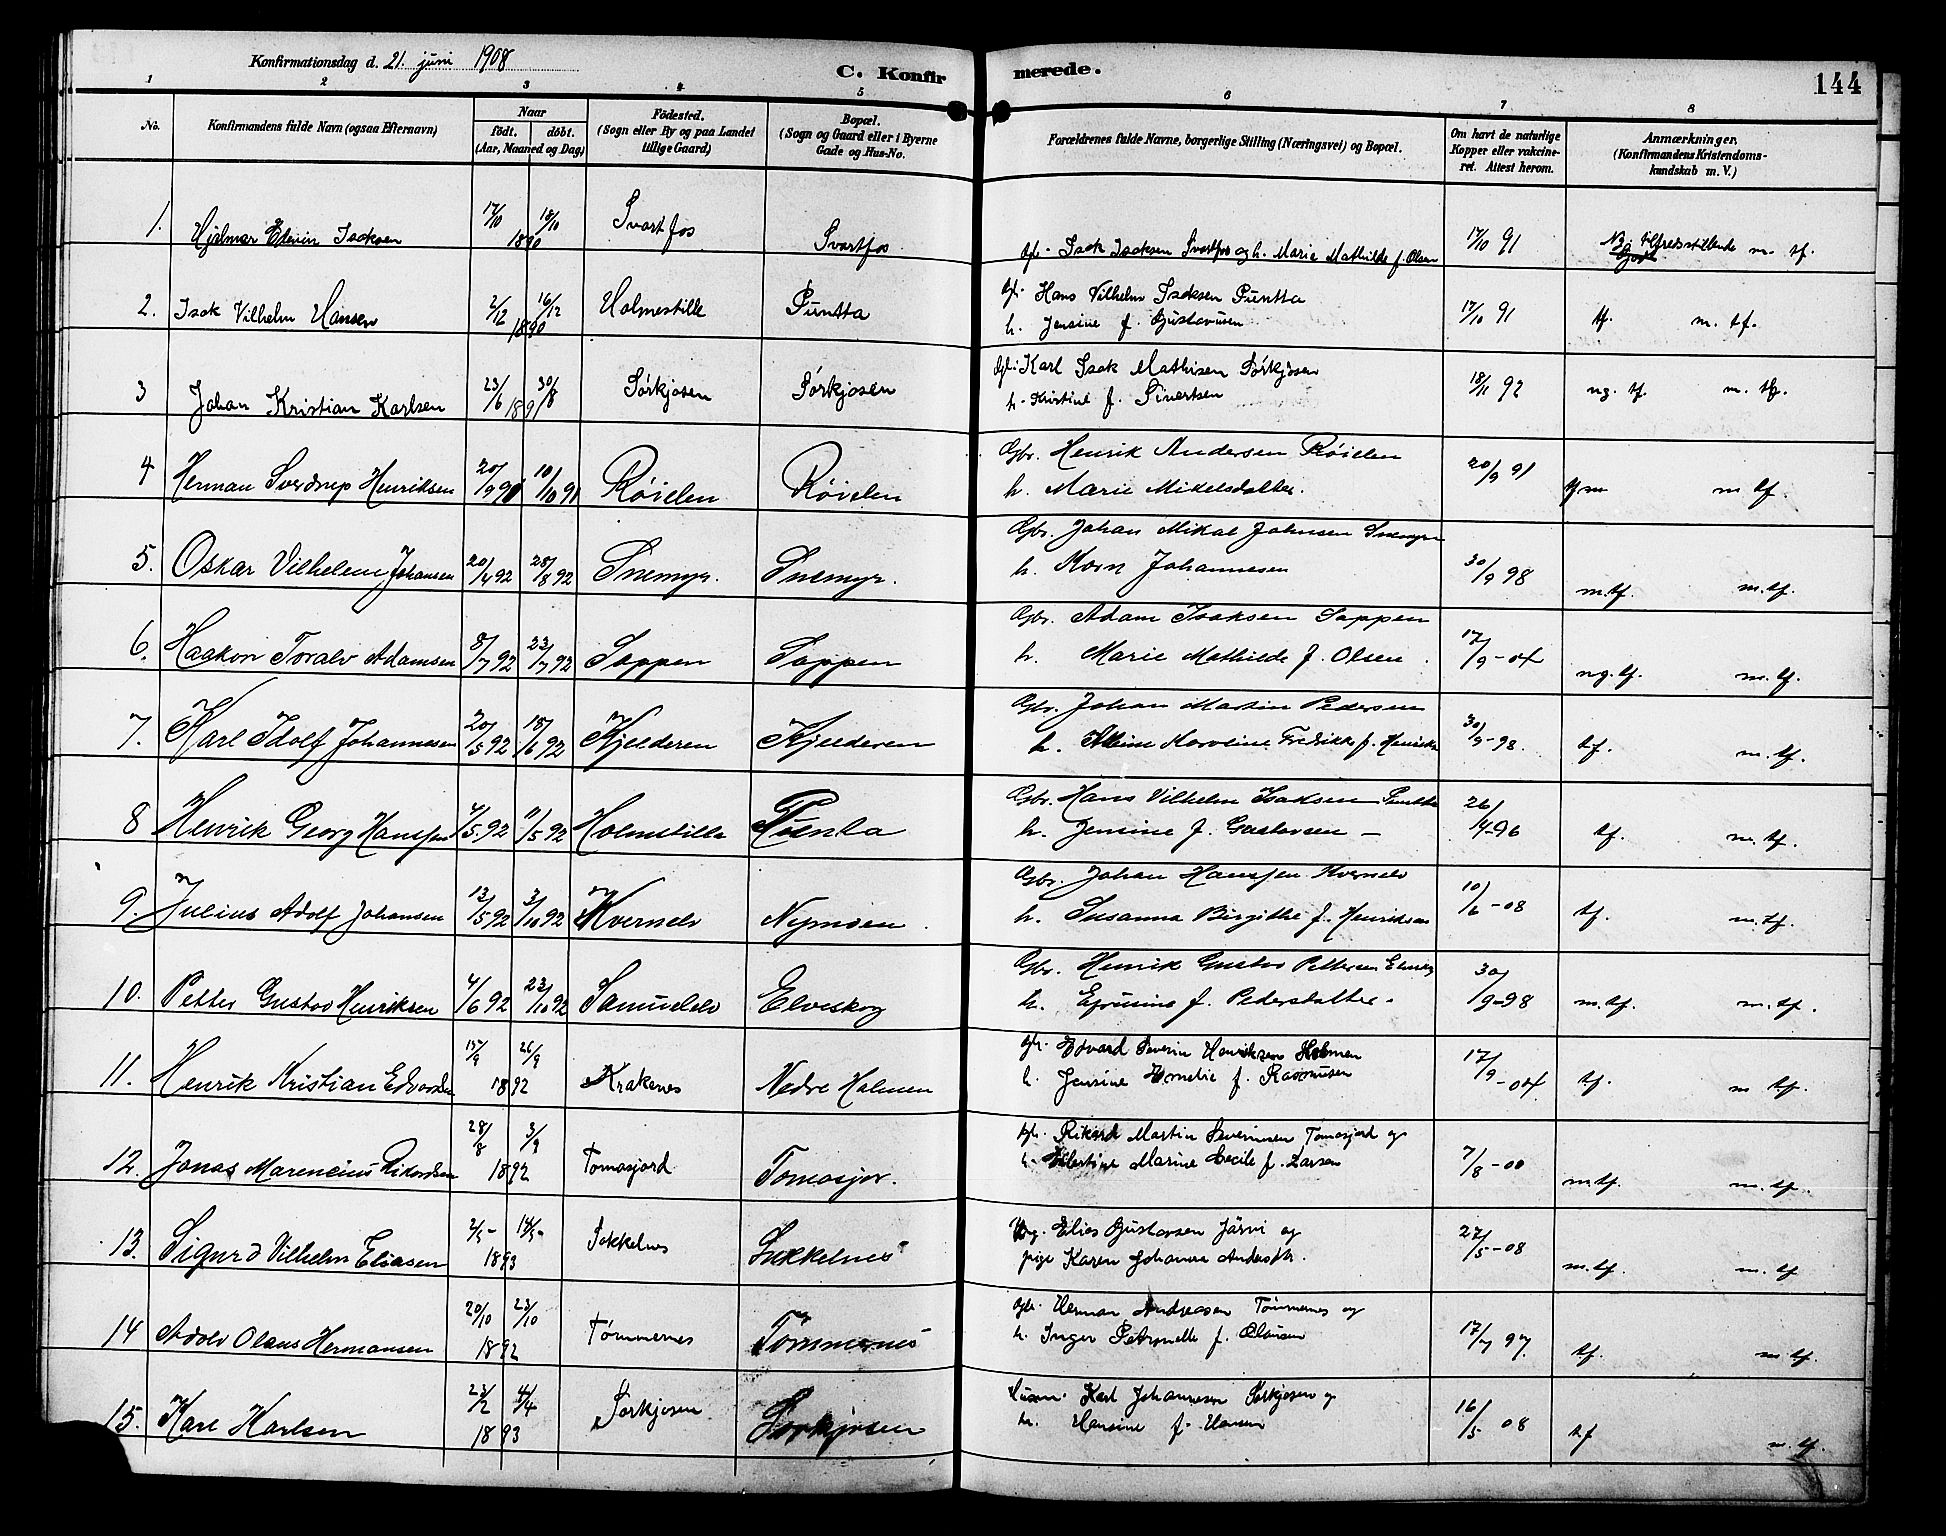 Konfirmationsdag d. 21. juni 1908
C. Konfirmerede.
144
1 2 3 4 5 6 7 8
No. Konfirmandens fulde Navn (ogsaa Efternavn) Naar födt. döbt. (Aar, Maaned og Dag) Födested. (Sogn eller By og paa Landet tillige Gaard) Bopæl. (Sogn og Gaard eller i Byerne Gade og Hus-No. Forældrenes fulde Navne, borgerlige Stilling (Næringsvei) og Bopæl. Om havt de naturlige Kopper eller vakcineret. Attest herom. Anmærkninger. (Konfirmandens Kristendomskundskab m. V.)
1. Hjalmar Edevin Isaksen 17/10 18/10 1890 Svartfos Svartfos Gbr. Isak Isaksen Svartfos og h. Marie Mathilde f. Olsen 17/10 91 Ng. tilfredsstillende m. tf.
2. Isak Vilhelm Hansen 2/12 16/12 1890 Holmestille Puntta Gbr. Hans Vilhelm Isaksen Puntta
h. Jensine f. Gustavsen 17/10 91 tf. m. tf.
3 Johan Kristian Karlsen 23/6 30/8 1891 Sørkjosen Sørkjosen Gbr. Karl Isak Mathisen Sørkjosen
h. Kristine f. Sivertsen 18/11 92 ng. tf. m. tf.
4 Herman Sverdrup Henriksen 20/9 91 10/10 91 Røielen Røielen Gbr. Henrik Andersen Røielen
h. Marie Mikelsdatter. 20/9 91 m tf.
5. Oskar Vilhelm Johansen 20/4 92 28/8 92 Snemyr. Snemyr. Gbr. Johan Mikal Johnsen Snemyr
h. Karn Johannesen 30/9 98 m.tf. m.tf.
6. Haakon Toralv Adamsen 8/7 92 23/7 92 Sappen Sappen Gbr. Adam Isaksen Sappen
h. Marie Mathilde f. Olsen. 17/9-04 ng. tf. m. tf.
7. Karl Idolf Johannesen 20/5 92 18/6 92 Kjelderen Kjelderen Gbr. Johan Martin Pedersen
h. Karoline Fredrikke f. Henriks 30/9-98. tf. m. tf.
8 Henrik Georg Hanssen 4/5.92 11/5 92 Holmstille Puenta Gbr. Hans Vilhelm Isaksen Puntta
h. Jensine f. Gustavsen - 26/4-96 tf. m. tf.
9. Julius Adolf Johansen 12/5 92 3/10 92 Kvernelv Nymoen. Gbr. Johan Hanssen Kvernelv
h. Susanna Birgithe f. Henriksen 10/6-08 tf. m.tf.
10. Petter Gustav Henriksen 4/6 92 23/10 92 Samuelelv Elveskog Gbr. Henrik Gustav Pettersen Elveskog
h. Efrusine f. Pedersdatter. 30/9-98 m.tf. m. tf.
11. Henrik Kristian Edvardsen 15/9 26/9 1892 Krakenes Nedre Holmen Gbr. Edvard Severin Henriksen Holmen
h. Jensine Amelie f. Rasmusen 17/9-04 tf. m tf.
12. Jonas Marencius Rikardsen 28/8 3/9 1892 Tomasjord Tomasjor. Gbr. Rikard Martin Severinsen Tomasjord og
h. Marine Cecile f. Larsen 7/8-00 m.tf. m. tf.
13. Sigurd Vilhelm Eliasen 2/5- 14/5- 1893 Sokkelnes Sukkelnes Ung. Elias Gustavsen Järvi og
pige Karen Johanna Andersdtr. 27/5-08 m.tf. m. tf
14 Adolv Olaus Hermansen 20/10 23/10 1892 Tømmernes Tömmernes Gbr. Herman Andreasen Tømmernes og
h. Inger Petronelle f. Olausen 17/7 97. tf. m. tf.
15. Karl Karlsen 23/2 4/4 1893 Sørkjosen Sørkjosen Husm. Karl Johannesen Sørkjosen og
h. Hansine f. Hansen 16/5 08 tf m. tf.